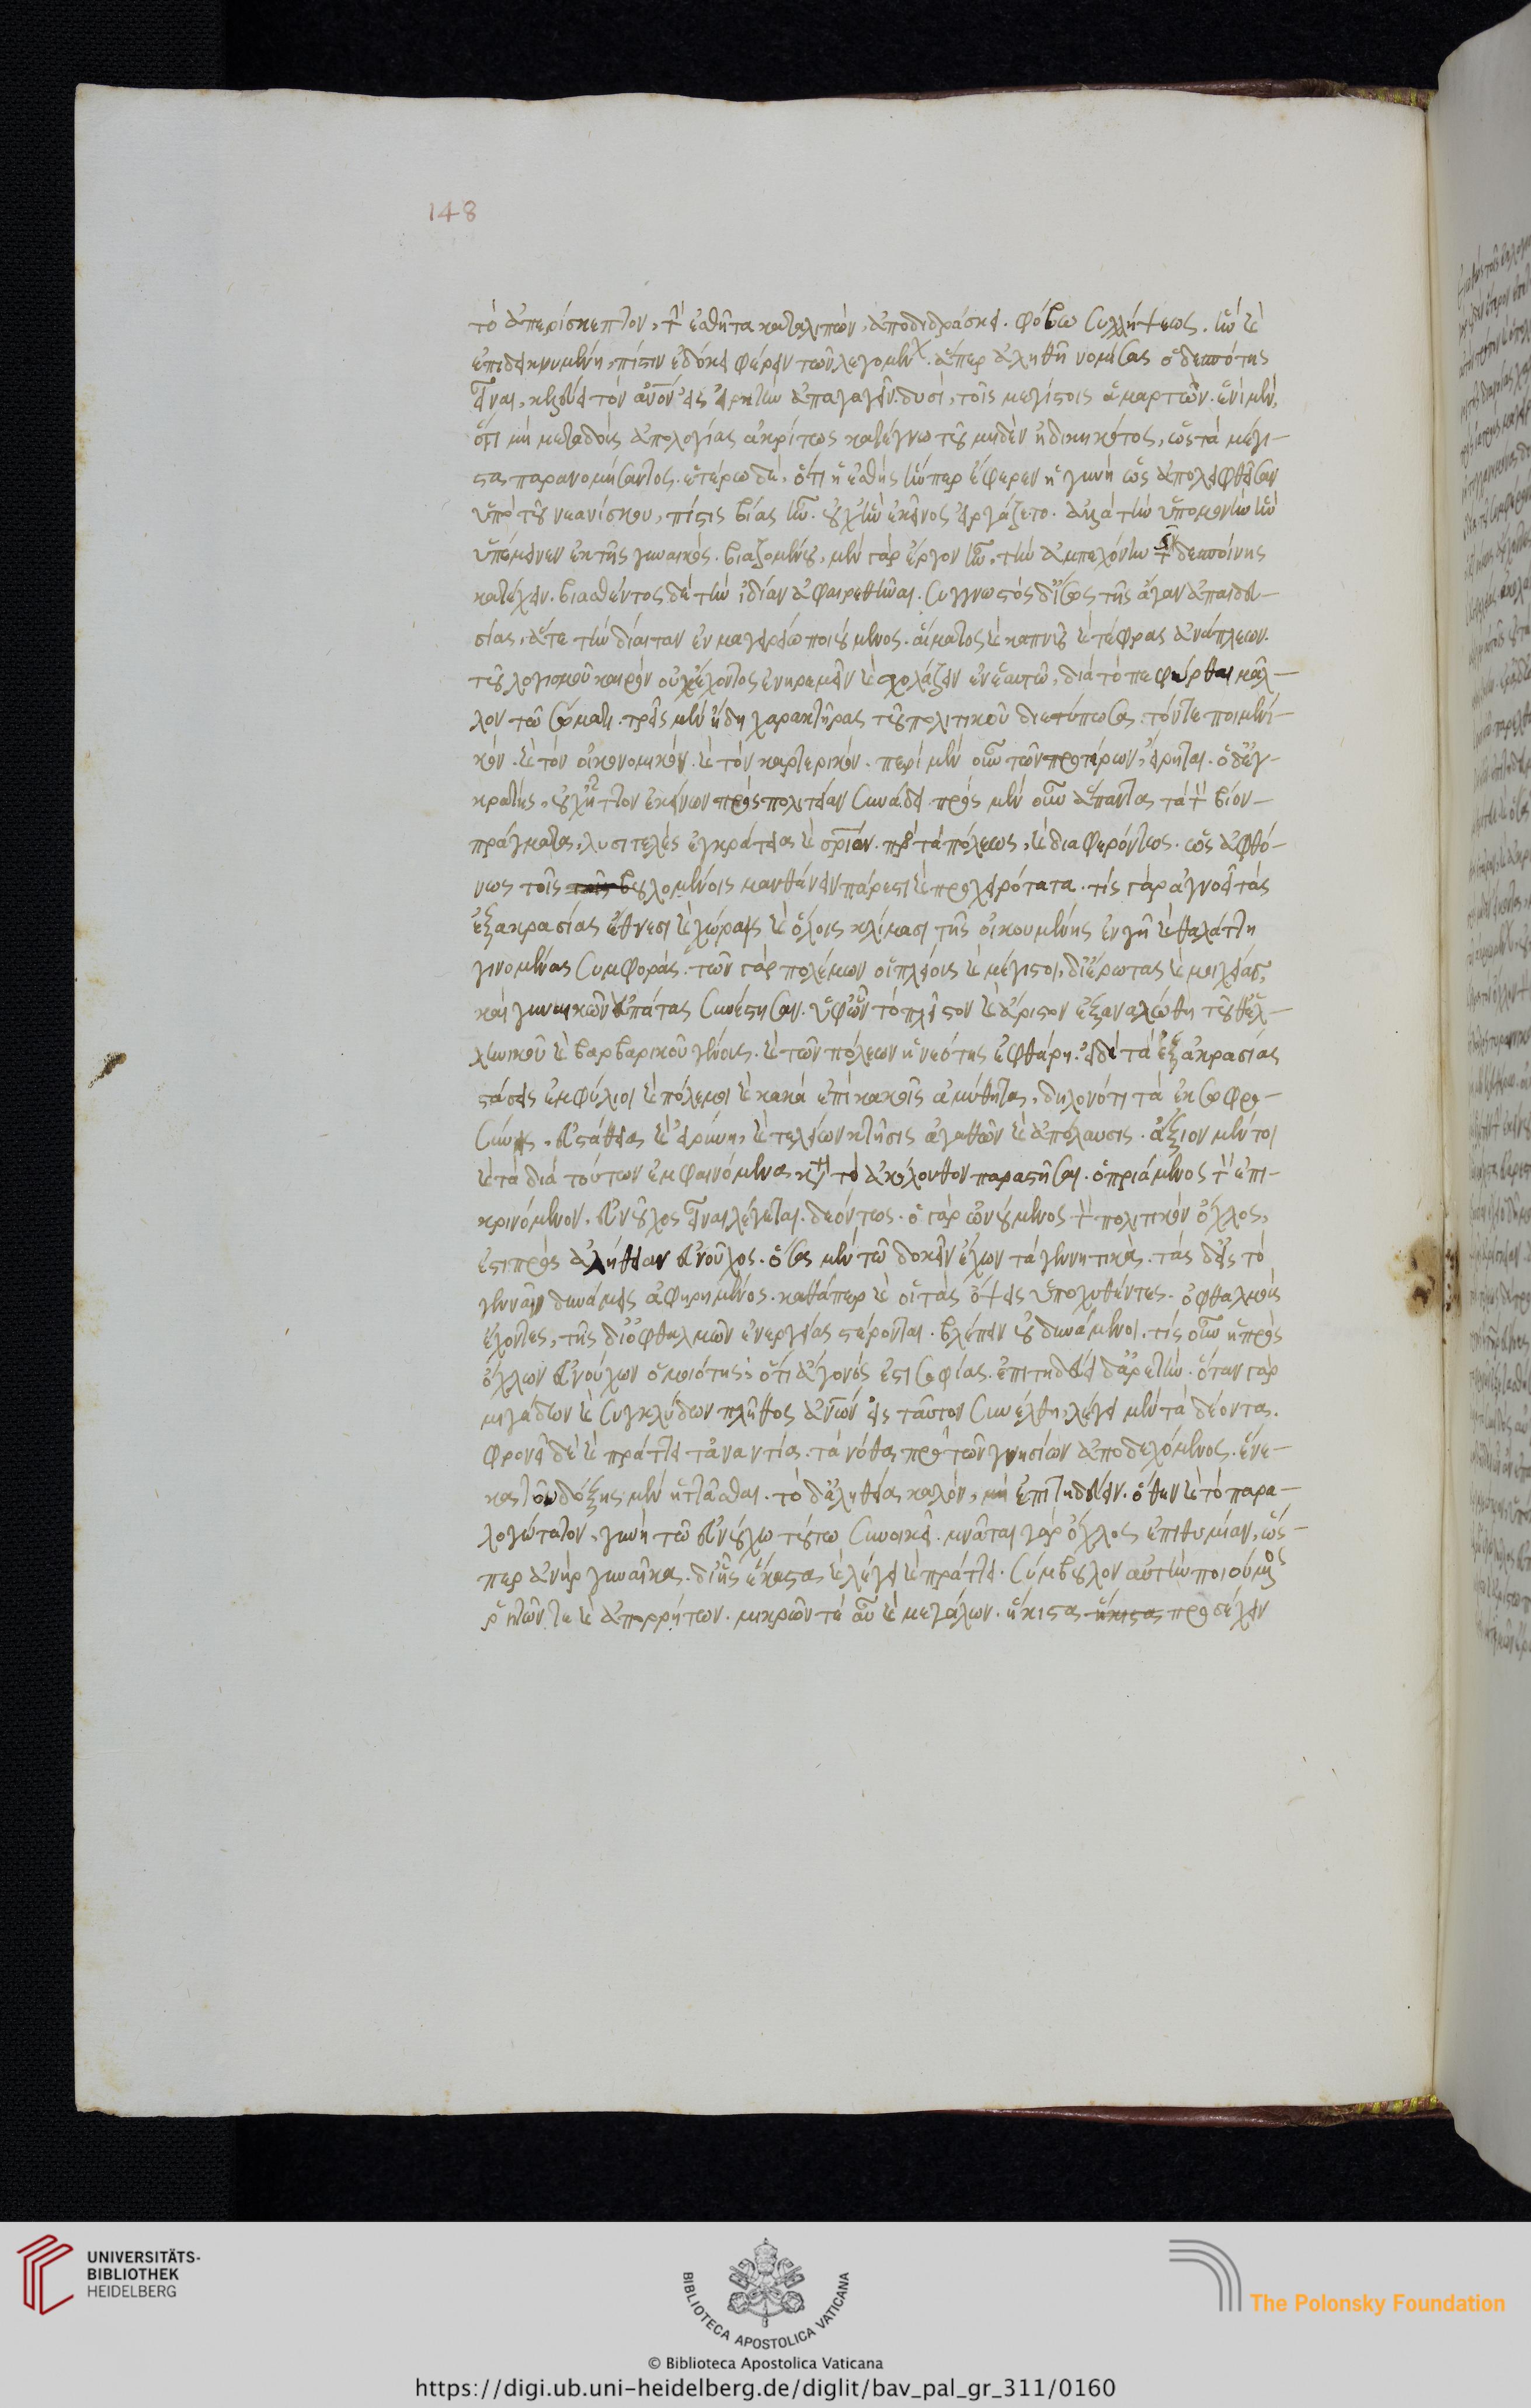 148
τὸ ἀπερίσκεπτον, τὴν ἐσθῆτα καταλιπὼν, ἀποδιδράσκει. φόβω συλλήψεως. ἣν καὶ
ἐπιδεικνυμένη, πίστιν ἐδόκει φέρειν τῶν λεγομένων. ἅπερ ἀληθῆ νομίσας ὁ δεσπότης
εἶναι, κελεύει τὸν ἄνον εἰς εἱρκτὴν ἀπαγαγεῖν. δυσὶ, τοῖς μεγίστοις ἁμαρτών. ἑνὶ μὲν,
ὅτι μὴ μεταδοὺς ἀπολογίας ἀκρίτως κατέγνω τοῦ μηδὲν ἠδικηκότος, ὡς τὰ μέγι-
στα παρανομήσαντος. ἑτέρω δὲ, ὅτι ἡ ἐσθὴς ἥνπερ ἔφερεν ἡ γυνὴ ὡς ἀπολειφθεῖσαν
ὑπὸ τοῦ νεανίσκου, πίστις βίας ἦν. οὐχ ἣν ἐκεῖνος εἰργάζετο. ἀλλὰ τὴν ὑπομονὴν ἣν
ὑπέμεινεν ἐκ τῆς γυναικός. βιαζομένου, μὲν γὰρ ἔργον ἦν, τὴν ἀμπεχόνην τῆς δεσποίνης
κατέχειν. βιασθέντος δὲ τὴν ἰδίαν ἀφαιρεθῆναι. συγγνωστὸς δ' ἴσως τῆς ἄγαν ἀπαιδευ-
σίας, ἅτε τὴν δίαιταν ἐν μαγειρείω ποιούμενος. αἵματος καὶ καπνοῦ καὶ τέφρας ἀνάπλεων.
τοῦ λογισμοῦ καιρὸν οὐκ ἔχοντος ἐνηρεμεῖν καὶ σχολάζειν ἐν ἑαυτῶ, διὰ τὸ πεφύρθαι μᾶλ-
λον τῶ σώματι. τρεῖς μὲν ἤδη χαρακτῆρας τοῦ πολιτικοῦ διετύπωσε. τόν τε ποιμενι-
κόν. καὶ τὸν οἰκονομικόν. καὶ τὸν καρτερικόν. περὶ μὲν οὖν τῶν προτέρων, εἴρηται. ὁ δ' ἐγ-
κρατὴς, οὐχ ἧττον ἐκείνων πρὸς πολιτείαν συνάδει. πρὸς μὲν οὖν ἅπαντα τὰ τὸν βίον
πράγματα, λυσιτελὲς ἐγκράτεια καὶ σριον. πρὸς τὰ πόλεως, καὶ διαφερόντως. ὡς ἀφθό-
νως τοῖς τοῖς βουλομένοις μανθάνειν πάρεστι καὶ προχειρότατα. τίς γὰρ ἀγνοεῖ τὰς
ἐξ ἀκρασίας ἔθνεσι καὶ χώραις καὶ ὅλοις κλίμασι τῆς οἰκουμένης ἐν γῆ καὶ θαλάττη
γινομένας συμφοράς. τῶν γὰρ πολέμων οἱ πλείους καὶ μέγιστοι, δι' ἔρωτας καὶ μοιχείας,
καὶ γυναικῶν ἀπάτας συνέστησαν. ὑφ' ὧν τὸ πλεῖστον καὶ ἄριστον ἐξαναλώθη τοῦ θ' ἑλ-
ληνικοῦ καὶ βαρβαρικοῦ γένους. καὶ τῶν πόλεων ἡ νεότης ἐφθάρη. εἰ δὲ τὰ ἐξ ἀκρασίας
στάσεις ἐμφύλιοι καὶ πόλεμοι καὶ κακὰ ἐπὶ κακοῖς ἀμύθητα, δηλονότι τὰ ἐκ σωφρο-
σύνης, εὐστάθεια καὶ εἰρήνη, καὶ τελείων κτῆσις ἀγαθῶν καὶ ἀπόλαυσις. ἄξιον μέντοι
καὶ τὰ διὰ τούτων ἐμφαινόμενα κατὰ τὸ ἀκόλουθον παραστῆσαι. ὁ πριάμενος τὸν ἐπι-
κρινόμενον, εὐνοῦχος εἶναι λέγεται. δεόντως. ὁ γὰρ ὠνούμενος τὸν πολιτικὸν ὄχλος,
ἐστὶ πρὸς ἀλήθειαν εὐνοῦχος. ὅσα μὲν τῶ δοκεῖν ἔχων τὰ γεννητικὰ. τὰς δ' εἰς τὸ
γεννᾶν δυνάμεις ἀφηρημένος. καθάπερ καὶ οἱ τὰς ὄψεις ὑποχυθέντες. ὀφθαλμοὺς
ἔχοντες, τῆς δι' ὀφθαλμῶν ἐνεργείας στέρονται. βλέπειν οὐ δυνάμενοι. τίς οὖν ἡ πρὸς
ὄχλων εὐνούχων ὁμοιότης; ὅτι ἄγονός ἐστι σοφίας. ἐπιτηδεύει δ' ἀρετήν. ὅταν γὰρ
μιγάδων καὶ συγκλύδων πλῆθος ἀνων εἰς ταὐτὸν συνέλθη, λέγει μὲν τὰ δέοντα.
φρονεῖ δὲ καὶ πράττει τἀναντία. τὰ νόθα πρὸ τῶν γνησίων ἀποδεχόμενος. ἕνε-
κα τοῦ δόξης μὲν ἡττᾶσθαι. τὸ δ' ἀληθείας καλὸν, μὴ ἐπιτηδεύειν. ὅθεν καὶ τὸ παρα-
λογώτατον, γυνὴ τῶ εὐνούχω τούτω συνοικεῖ. μνᾶται γὰρ ὄχλος ἐπιθυμίαν, ὥς-
περ ἀνὴρ γυναῖκα. δι' ἧς ἕκαστα καὶ λέγει καὶ πράττει. σύμβουλον αὐτὴν ποιούμενος
ῥητῶν τε καὶ ἀπορρήτων. μικρῶν τε αὖ καὶ μεγάλων. ἥκιστα ἥκιστα προσέχειν
UNIVERSITÄTS-
BIBLIOTHEK
HEIDELBERG
BIBLIOTECA APOSTOLICA VATICANA
The Polonsky Foundation
© Biblioteca Apostolica Vaticana
https://digi.ub.uni-heidelberg.de/diglit/bav_pal_gr_311/0160